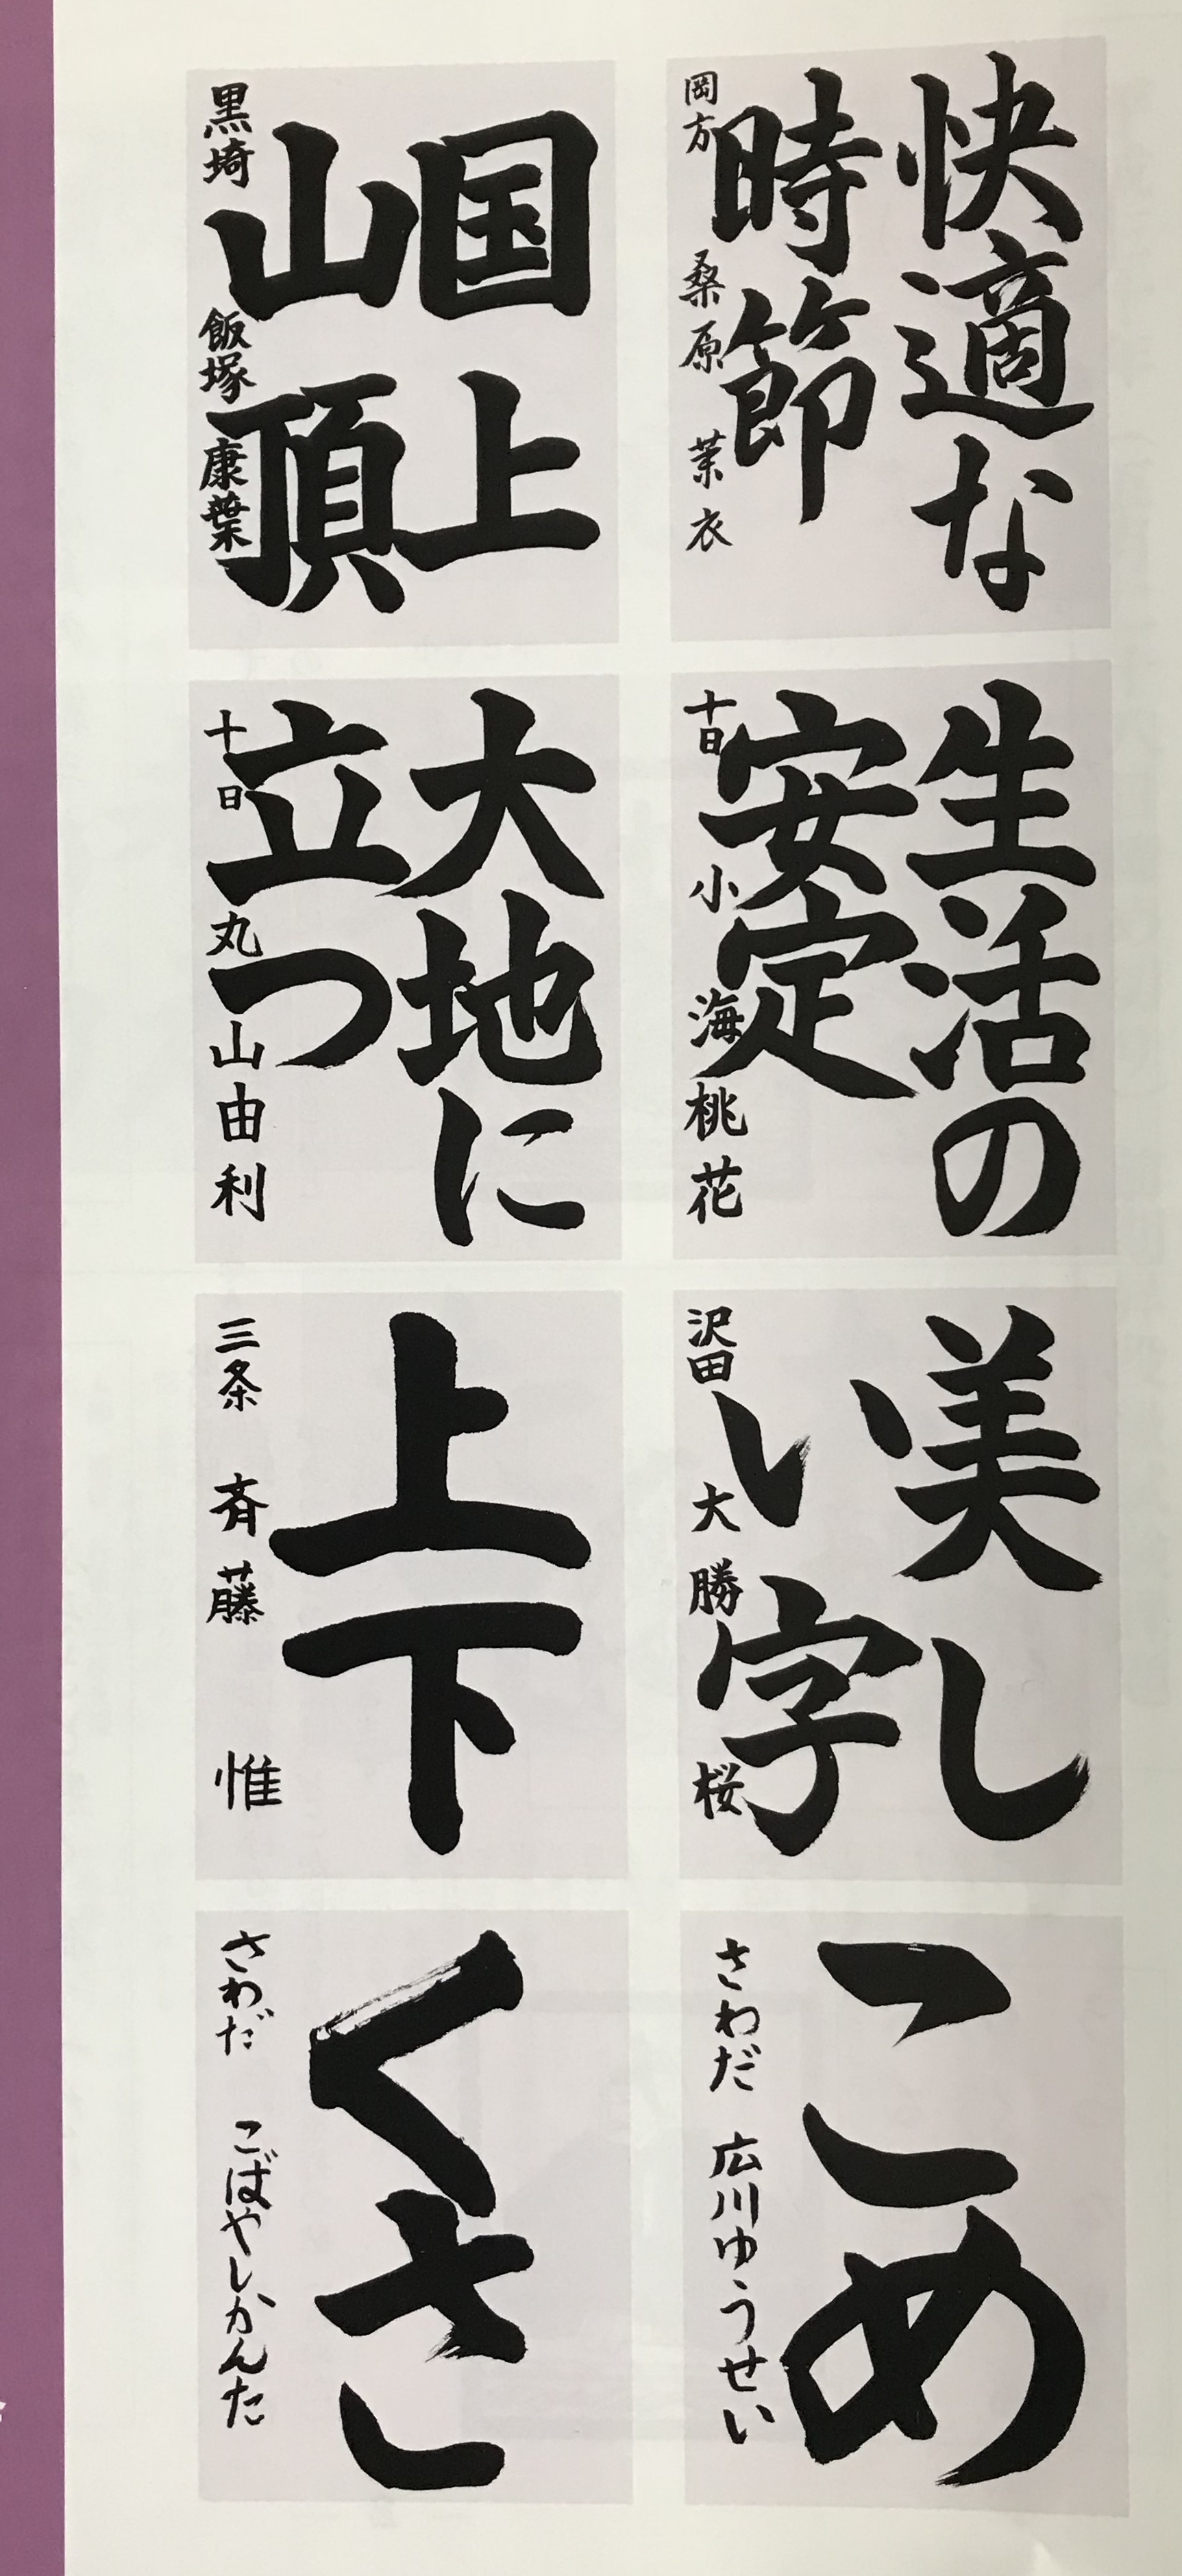 快適な
時節
岡方 桑原 茉衣
国上
山頂
黒埼 飯塚 康葉
生活の
安定
十日 小海 桃花
大地に
立つ
十日 丸山 由利
美し
い字
沢田 大勝 桜
上下
三条 斉藤 惟
こめ
さわだ 広川ゆうせい
くさ
さわだ こばやしかんた